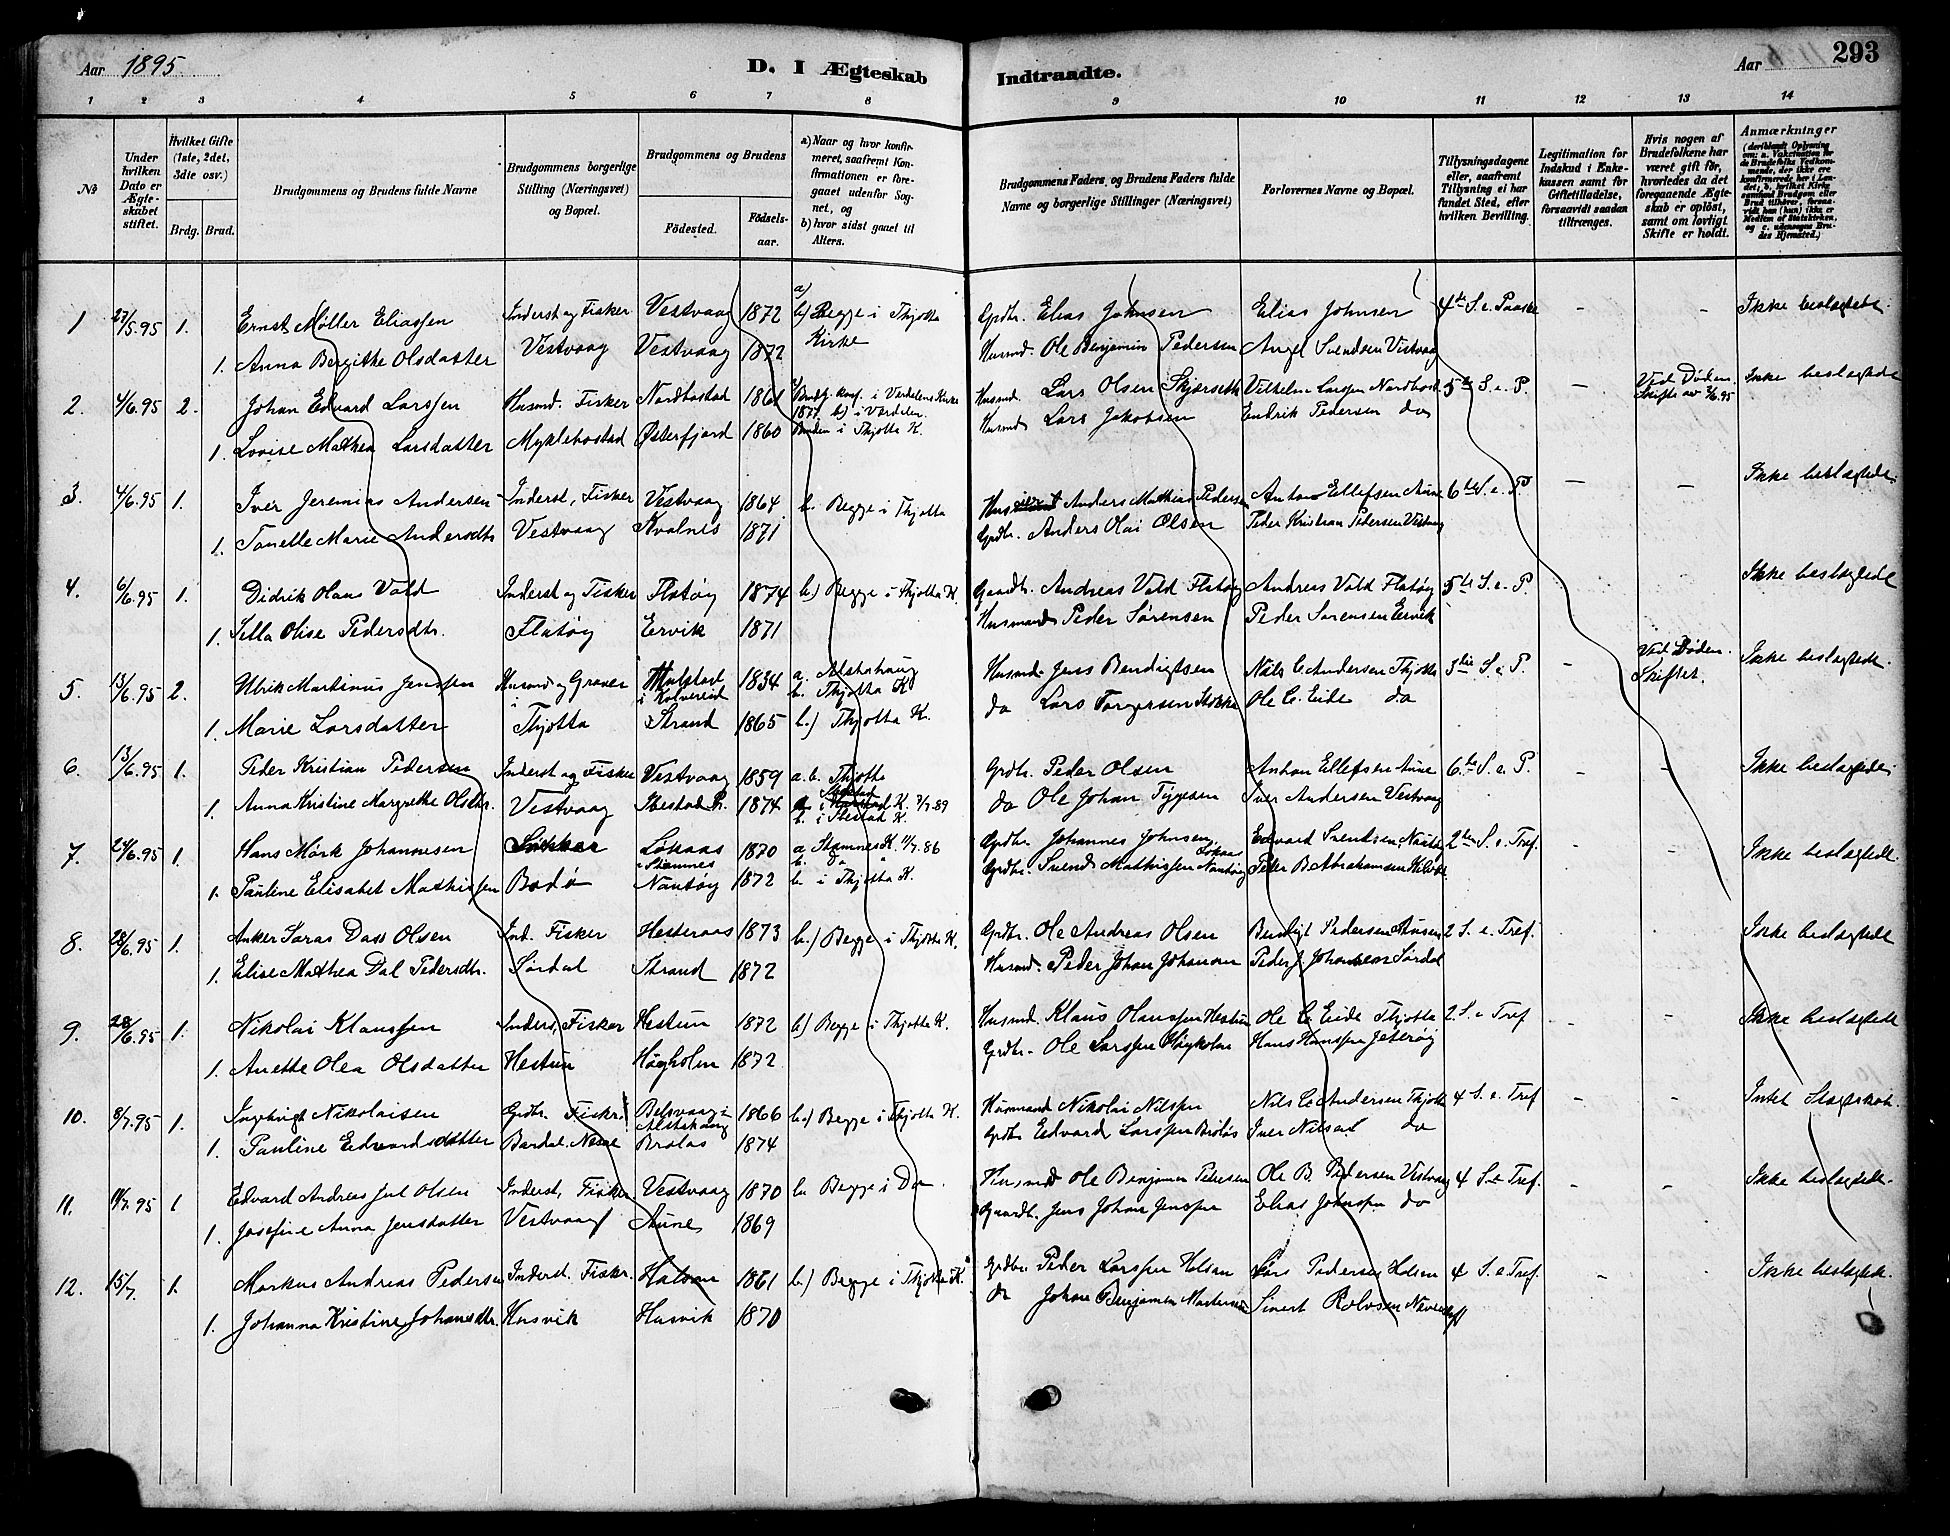 Aar 1895. D. I Ægteskab Indtraadte. Aar 293
1 2 3 4 5 6 7 8 9 10 11 12 13 14
No
Under hvilken Dato er Ægteskabet stiftet.
Hvilket Gifte (1ste, 2det, 3die osv.)
Brdg. Brud.
Brudgommens og Brudens fulde Navne
Brudgommens borgerlige Stilling (Næringsvei) og Bopæl.
Brudgommens og Brudens
Fødested. Fødselsaar.
a) Naar og hvor konfirmeret, saafremt Konfirmationen er foregaaet udenfor Sognet, og
b) hvor sidst gaaet til Alters.
Brudgommens Faders og Brudens Faders fulde Navne og borgerlige Stillinger (Næringsvei)
Forlovernes Navne og Bopæl.
Tillysningsdagene eller, saafremt Tillysning ei har fundet Sted, efter hvilken Bevilling.
Legitimation for Indskud i Enkekassen samt for Giftetilladelse, forsaavidt saadan tiltrænges.
Hvis nogen af Brudefolkene har været gift før, hvorledes da det foregaaende Ægteskab er opløst, samt om lovligt Skifte er holdt.
Anmærkninger (deriblandt Oplysning om: a. Vaksination for de Brudefolks Vedkommende, der ikke ere konfirmerede her i Landet, b. hvilket Kirkesamfund Brudgom eller Brud tilhører, forsaavidt han (hun) ikke er Medlem af Statskirken, og c. udensogns Brudes Hjemsted.)
1 27/5.95 1. Ernst Møller Eliassen Inderst og Fisker Vestvaag 1872 a) b) Begge i Thjotta Kirke Grdbr. Elias Johnsen Elias Johnsen 4de S. e. Paaske - - Ikke beslægtede
1. Anna Bergitke Olsdatter Vestvaag Vestvaag 1872 Husmd. Ole Benjamin Pedersen Angel Svendsen Vestvaag
2. 4/6.95 2. Johan Edvard Larssen Husmd. Fisker Nordbostad 1861 Brudg. konf. i Værdalens Kirke 1877 b) i Værdalen. Husmd. Lars Olsen Skjærseth Vilhelm Larssen Nordbost 5te S. e. P. - Ved Døden. Skifte av 3/6.95 Ikke beslægtede
1. Lovise Mathea Larsdatter Myklebostad Østerfjord 1860 Bruden i Thjotta K. Husmd. Lars Jakobsen Endrik Pedersen do
3. 4/6.95 1. Iver Jeremias Andersen Inderst, Fisker Vestvaag 1864 b. Begge i Thjotta Husmand Anders Mathias Pedersen Anton Ellefsen Aune 6te S. e. P. - - Ikke beslægtede
1. Tanelle Marie Andersdtr Vestvaag Kvalnes 1871 Grdbr. Anders Olai Olsen Peder Kristian Pedersen Vestvaag
4. 6/6.95 1. Didrik Olaus Vold Inderst og Fisker Flatøy 1874 b) Begge i Thjotta K. Gaardbr. Andreas Vold Flatøy Andreas Vold Flatøy 5te S. e. P. Ikke beslægtede
1. Silla Olise Pedersdtr. Flatøy Eervik 1871 Husmand Peder Sørensen Peder Sørensen Eervik
5. 13/6.95 2. Ulrik Martinus Jenssen Husmd og Graver i Mulstad i Kolvereid 1834 a. Alstahaug b. Thjotta K Husmd. Jens Bendigtsen Nils C. Andersen Thjotta 3die S. e P. - Ved Døden. Skiftet. Ikke beslægtede.
1. Marie Larsdatter Thjotta Strand 1865 b.) Thjotta K. do Lars Torgersen Stokka Ole C. Eide do
6. 13/6.95 1. Peder Kristian Pedersen Inderst og Fisker Vestvaag 1859 a. b. Thjotta Grdbr. Peder Olsen Anton Ellefsen Aune 6.te S. e. P. - - Ikke beslægtede
1. Anna Kristine Margrethe Olsdtr. Vestvaag Ibestad P. 1874 a. i Ibestad K. 7/7.89 b. i Ibestad K. do Ole Johan Tygesen Iver Andersen Vestvaag
7. 24/6.95 1. Hans Mørk Johannesen Løkaas i Stamnes 1870 a Stamnes K. 11/7.86 b. Do Grdbr. Johannes Johnsen Løkaas Edvard Svendsen Nautøy 2den S. e. Tref. - - Ikke beslægtede.
1. Pauline Elisabet Mathissen Bodø Nautøy 1872 b. i Thjotta K. Grdbr. Svend Mathissen Nautøy Peder B. Abrahamsen
8. 28/6.95 1. Anker Saras Dass Olsen Ind. Fisker Hesteraas 1873 b.) Begge i Thjotta K. Grdbr. Ole Andreas Olsen Bendigt Pedersen 2 S. e. Tref. Ikke beslægtede
1. Elise Mathea Dal Pedersdtr. Sørdal Strand 1872 Husmd. Peder Johan Johansen Peder J Johansen Sørdal
9. 28/6.95 1. Nikolai Klaussen Inderst, Fisker Hestun 1872 b) Begge i Thjotta K. Husmd. Klaus Olaussen Hestun Ole C. Eide Thjotta 2. S. e Tref - - Ikke beslægtede
1. Anette Olea Olsdatter Hestun Høgholm 1872 Grdbr. Ole Larssen Høgholm Hans Hanssen Jeterøy
10. 8/7.95 1. Ingebrigt Nikolaisen Grdbr. Fisker. Belsvaag i Alstahaug 1866 b.) Begge i Thjotta K. Husmand Nikolai Nilssen Nils C. Andersen Thjotta 4 S. e. Tref - - Intet Slægtskab.
1. Pauline Edvardsdatter Bardal. Nesne Braløs 1874 Grdbr Edvard Larssen Braløs Iver Nilsen do
11. 14/7.95 1 Edvard Andreas Jul Olsen Inderst, Fisker Vestvaag 1870 b. Begge i Do. Husmd Ole Benjamin Pedersen Ole B. Pedersen Vestvaag 4 S. e Tref. - - Ikke beslægtede.
1. Josefine Anna Jensdatter Vestvaag Aune 1869 Gaardb. Jens Johan Jenssen Elias Johnsen do
12. 15/7. 1. Markus Andreas Pedersen Inderst. Fisker. 1861 b.) Begge i Thjotta K. Grdbr Peder Larssen Lars Pedersen 4 S. e Tref. - Ikke beslægtede.
1. Johanna Kristine Johansdtr. Husvik Husvik 1870 do Johan Benjamin Mortensen Sivert Rolvsen